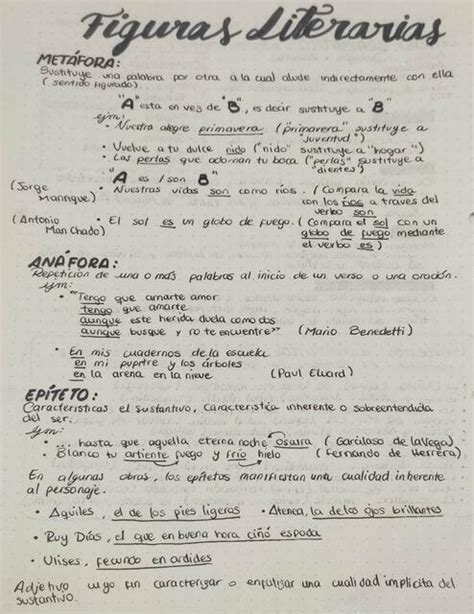 Figuras Literarias
METÁFORA:
Sustituye una palabra por otra a la cual alude indirectamente con ella
(sentido figurado).
"A" esta en vez de "B", es decir sustituye a "B"
ejm:
• Nuestra alegre primavera ("primavera" sustituye a
"juventud")
• Vuelve a tu dulce nido ("nido" sustituye a "hogar")
• Las perlas que adornan tu boca ("perlas" sustituye a
"dientes")
"A es /son B"
(Jorge Manrique) • Nuestras vidas son como rios. (Compara la vida
con los rios a traves del
verbo son.
(Antonio Man Chado) • El sol es un globo de fuego. (Compara el sol con un
globo de fuego mediante
el verbo es)
ANÁFORA:
Repetición de una o más palabras al inicio de un verso o una oración.
ejm:
• "Tengo que amarte amor
tengo que amarte
aunque este herida duela como dos
aunque busque y no te encuentre" (Mario Benedetti)
• En mis cuadernos de la escuela
en mi pupitre y los árboles
en la arena en la nieve (Paul Eluard)
EPÍTETO:
Caracteristicas el sustantivo, caracteristica inherente o sobreentendida
del ser.
ejm:
• ... hasta que aquella eterna noche Osuira (Garcilaso de la Vega)
• Blanco tu artiente fuego y frío hielo (Fernando de Herrera)
En algunas obras, los epítetos manifiestan una cualidad inherente
al personaje.
• Aquiles, el de los pies ligeros • Atenea, la de los ojos brillantes
• Ruy Dias, el que en buena hora ciñó espada
• Ulises, fecundo en ardides
Adjetivo cuyo fin caracterizar o enfulgar una cualidad implicita del
sustantivo.